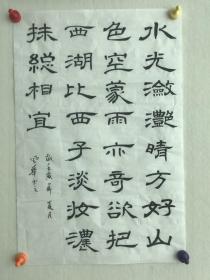 水光瀲灩晴方好山
色空蒙雨亦奇欲把
西湖比西子淡妝濃
抹總相宜